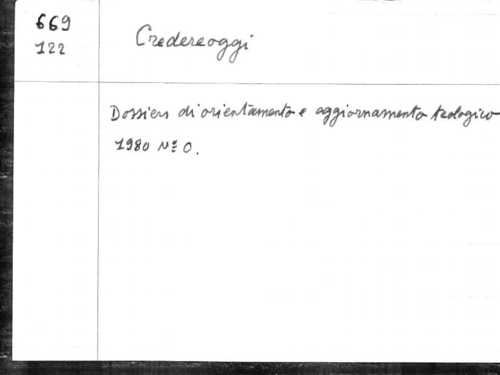 669
122
Credereoggi
Dossiers di orientamento e aggiornamento teologico
1980 Nº 0.